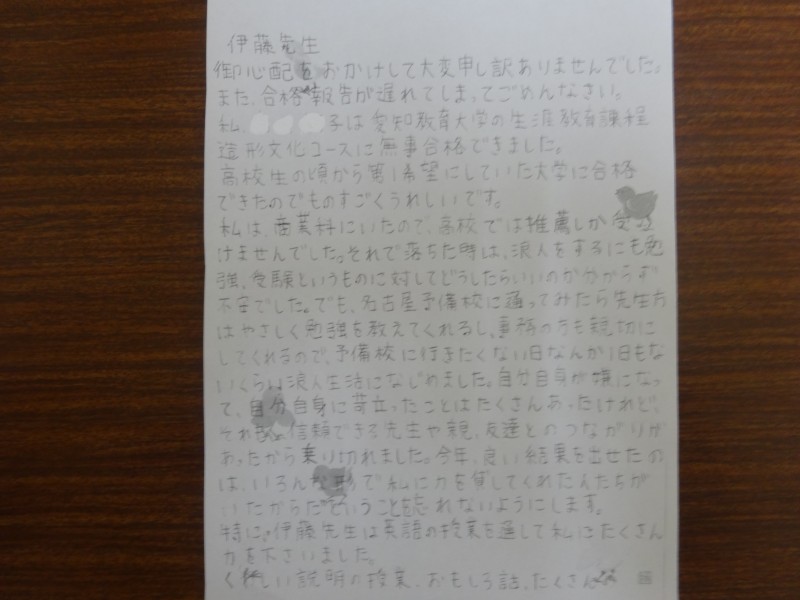 伊藤先生
御心配をおかけして大変申し訳ありませんでした。
また、合格報告が遅れてしまってごめんなさい。
私、子は愛知教育大学の生涯教育課程
造形文化コースに無事合格できました。
高校生の頃から第1希望にしていた大学に合格
できたのでものすごくうれしいです。
私は、商業科にいたので、高校では推薦しか受
けませんでした。それで落ちた時は、浪人をするにも勉
強、受験というものに対してどうしたらいいのか分からず
不安でした。でも、名古屋予備校に通ってみたら先生方
はやさしく勉強を教えてくれるし、事務の方も親切に
してくれるので、予備校に行きたくない日なんか1日もな
いくらい浪人生活になじめました。自分自身が嫌になっ
て、自分自身に苛立ったことはたくさんあったけれど、
それも信頼できる先生や親、友達とのつながりが
あったから乗り切れました。今年、良い結果を出せたの
は、いろんな形で私に力を貸してくれた人たちが
いたからだということを忘れないようにします。
特に、伊藤先生は英語の授業を通して私にたくさん
力を下さいました。
くわしい説明の授業、おもしろ話、たくさん